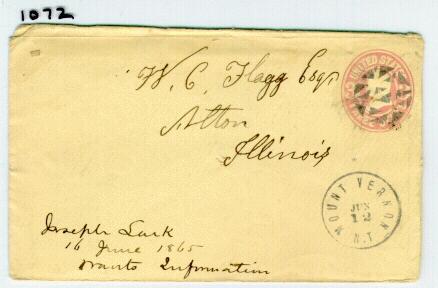 1072
W. C. Flagg Esqr
Alton
Illinois
UNITED STATES
MOUNT VERNON
JUN
12
N.Y.
Joseph Lark
16 June 1865
Wants Information